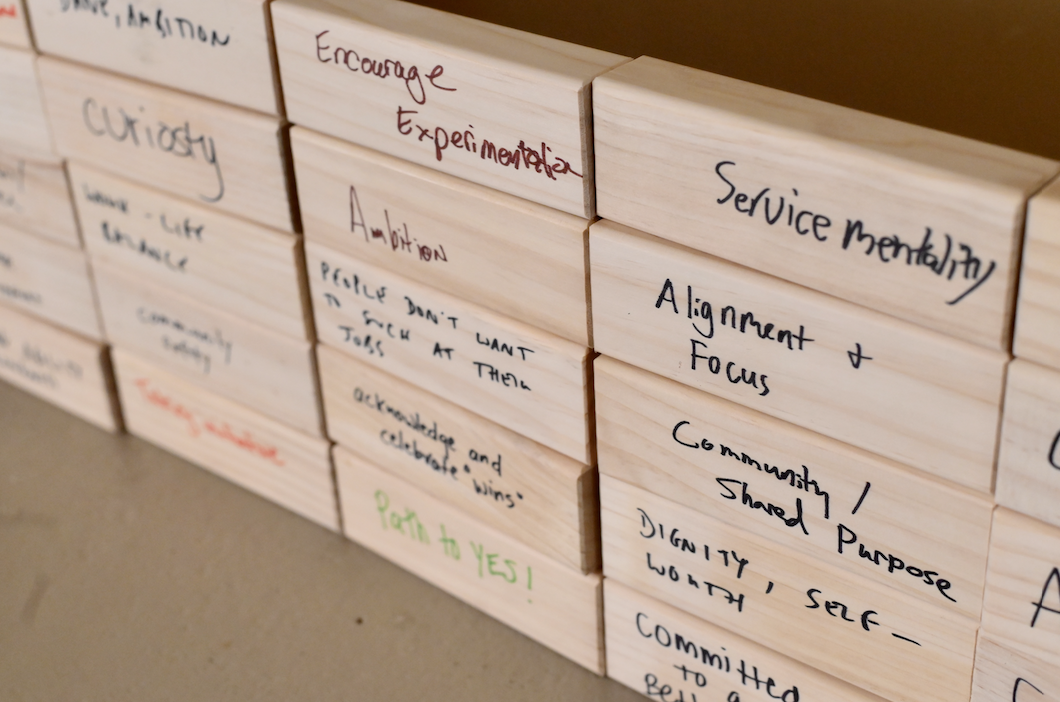 DRIVE, AMBITION
Curiosty
WORK - LIFE
BALANCE
Community
Safety
Encourage
Experimentation
Ambition
PEOPLE DON'T WANT
TO SUCK AT THEIR
JOBS
acknowledge and
celebrate "wins"
Path to YES!
Service mentality
Alignment +
Focus
Community /
Shared Purpose
DIGNITY, SELF-
WORTH
Committed
to a